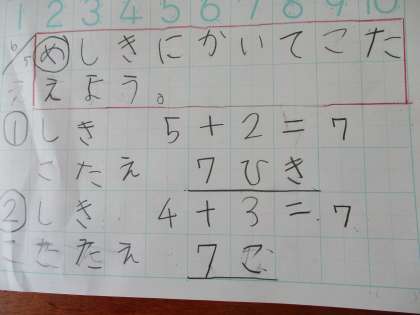 1 2 3 4 5 6 7 8 9 10
6/5 めしきにかいてこた
えよう。
① しき 5+2=7
こたえ 7ひき
② しき 4+3=7
こたえ 7こ